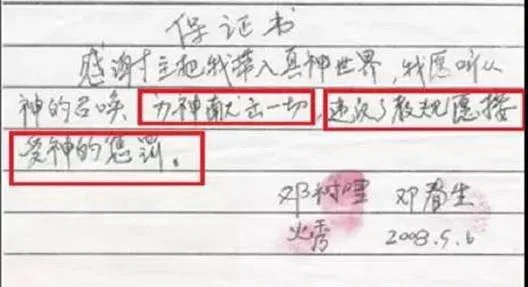 保证书
感谢主把我带入真神世界,我愿听从
神的召唤 为神献出一切,违反了教规愿接
受神的惩罚。
邓树 邓春生
秀 2003.5.6